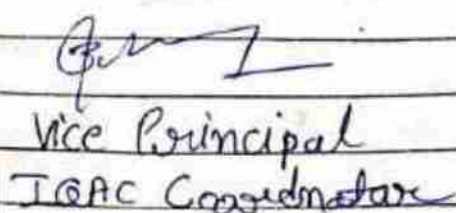 Vice Principal
IQAC Coordnator